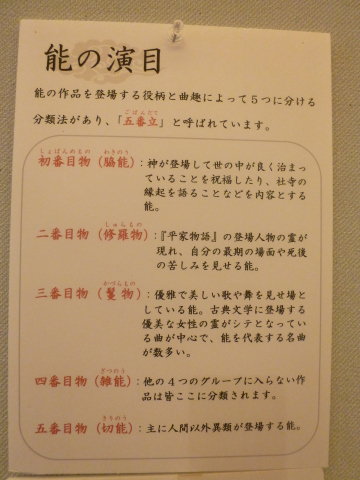 能の演目
能の作品を登場する役柄と曲趣によって5つに分ける
ごばんだて
分類法があり、「五番立」と呼ばれています。
しょばんめもの わきのう
初番目物（脇能）：神が登場して世の中が良く治まっ
ていることを祝福したり、社寺の
縁起を語ることなどを内容とする
能。
しゅらもの
二番目物（修羅物）：『平家物語』の登場人物の霊が
現れ、自分の最期の場面や死後
の苦しみを見せる能。
かづらもの
三番目物（鬘物）：優雅で美しい歌や舞を見せ場と
している能。古典文学に登場する
優美な女性の霊がシテとなってい
る曲が中心で、能を代表する名曲
が数多い。
ざつのう
四番目物（雑能）：他の4つのグループに入らない作
品は皆ここに分類されます。
きりのう
五番目物（切能）：主に人間以外異類が登場する能。